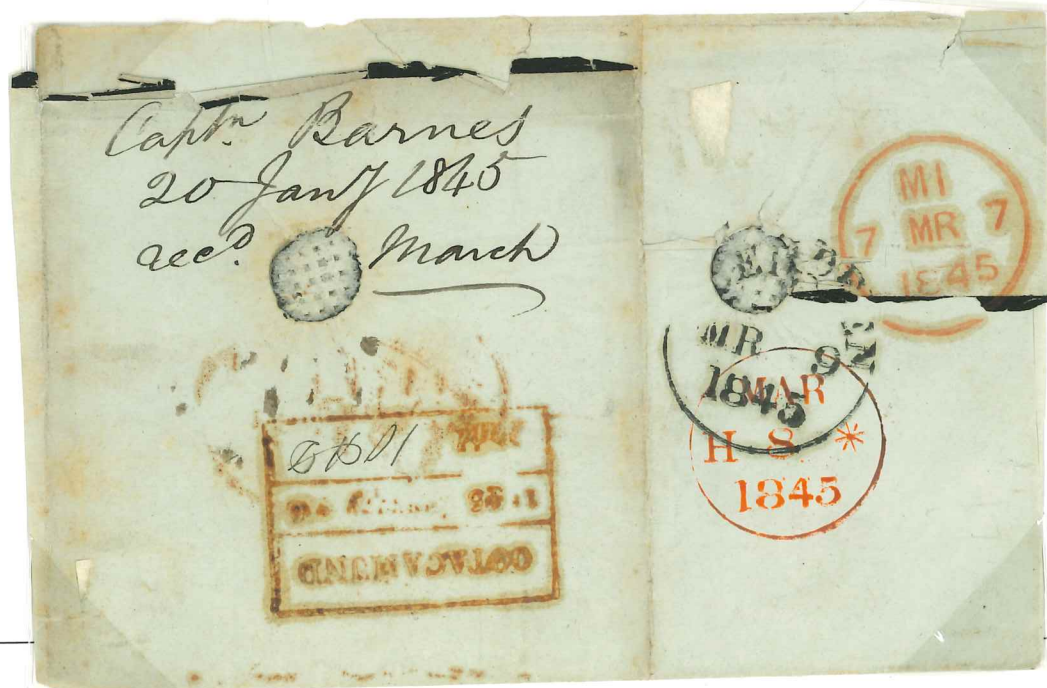 Captn. Barnes
20 Jany 1845
recd. March
MI
7 MR 7
1845
MR 9
1845
MAR
H 8 *
1845
OOTACAMUND